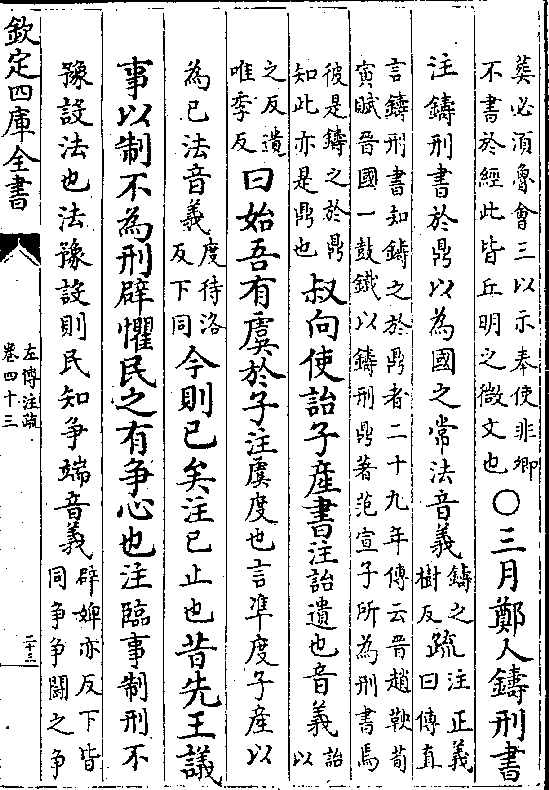 葬必須魯會三以示奉使非卿不書於經此皆丘明之微文也○三月鄭人鑄刑書
注鑄刑書於鼎以為國之常法音義鑄之樹反疏注正義曰傳直
言鑄刑書知鑄之於鼎者二十九年傳云晉趙鞅荀寅賦晉國一鼓鐵以鑄刑鼎著范宣子所為刑書焉
彼是鑄之於鼎知此亦是鼎也叔向使詒子産書注詒遺也音義詒以
之反遺唯季反曰始吾有虞於子注虞度也言準度子産以
為已法音義度待洛反下同今則已矣注已止也昔先王議
事以制不為刑辟懼民之有爭心也注臨事制刑不
豫設法也法豫設則民知爭端音義辟婢亦反下皆同爭爭鬭之爭
欽定四庫全書
左傳注疏
卷四十三
二十三